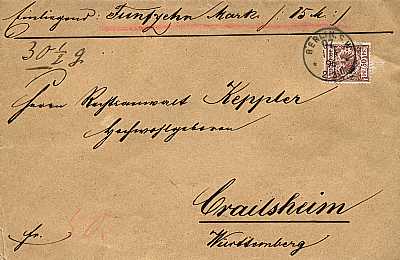 Einliegend: Funfzehn Mark. /: 15 M :/
BERLIN
30 g.
Herrn Rechtsanwalt Keppler
Hochwohlgeboren
Crailsheim
fr.
Württemberg